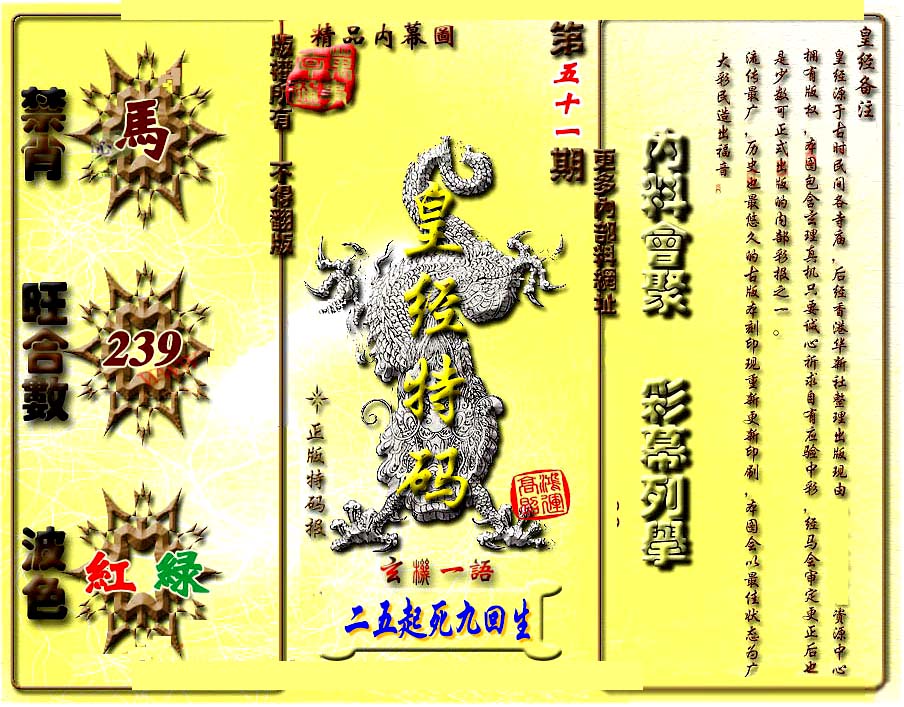 皇经备注
皇经源于古时民间各寺庙，后经香港华新社整理出版现由 资源中心
拥有版权，本图包含玄理真机只要诚心祈求自有应验中彩，经马会审定更正后也
是少数可正式出版的内部彩报之一。
流传最广，历史也最悠久的古版本刻印现重新更新印刷，本图会以最佳状态为广
大彩民造出福音。
內料會聚 彩幕列舉
更多內部料網址
第五十一期
精品内幕圖
皇经特码
鴻運高照
正版特码报
玄機一語
二五起死九回生
版權所有 不得翻版
禁肖
馬
旺合數
239
波色
紅 綠